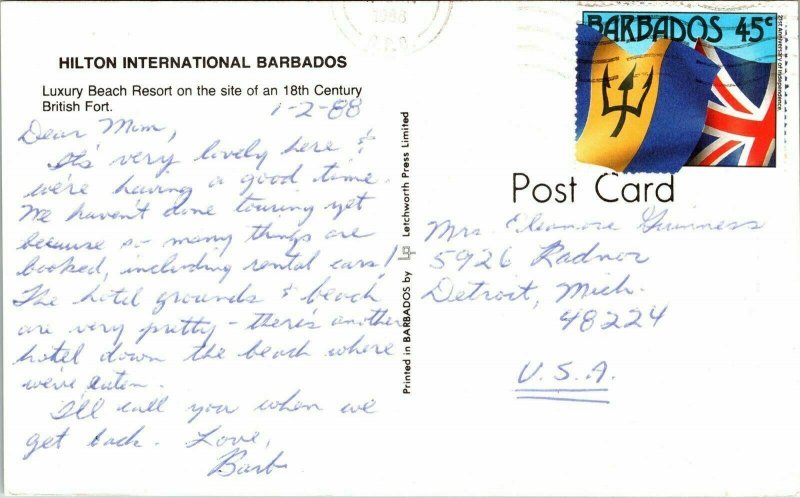 1988
BARBADOS 45c
21st Anniversary of Independence
HILTON INTERNATIONAL BARBADOS
Luxury Beach Resort on the site of an 18th Century
British Fort.
1-2-88
Dear Mim,
It's very lovely here &
we're having a good time.
We haven't done touring yet
because so many things are
booked, including rental cars!
The hotel grounds & beach
are very pretty - there's another
hotel down the beach where
we've eaten.
I'll call you when we
get back. Love,
Barb
Printed in BARBADOS by Letchworth Press Limited
Post Card
Mrs. Eleanore Guinness
5926 Radnor
Detroit, Mich.
48224
U.S.A.